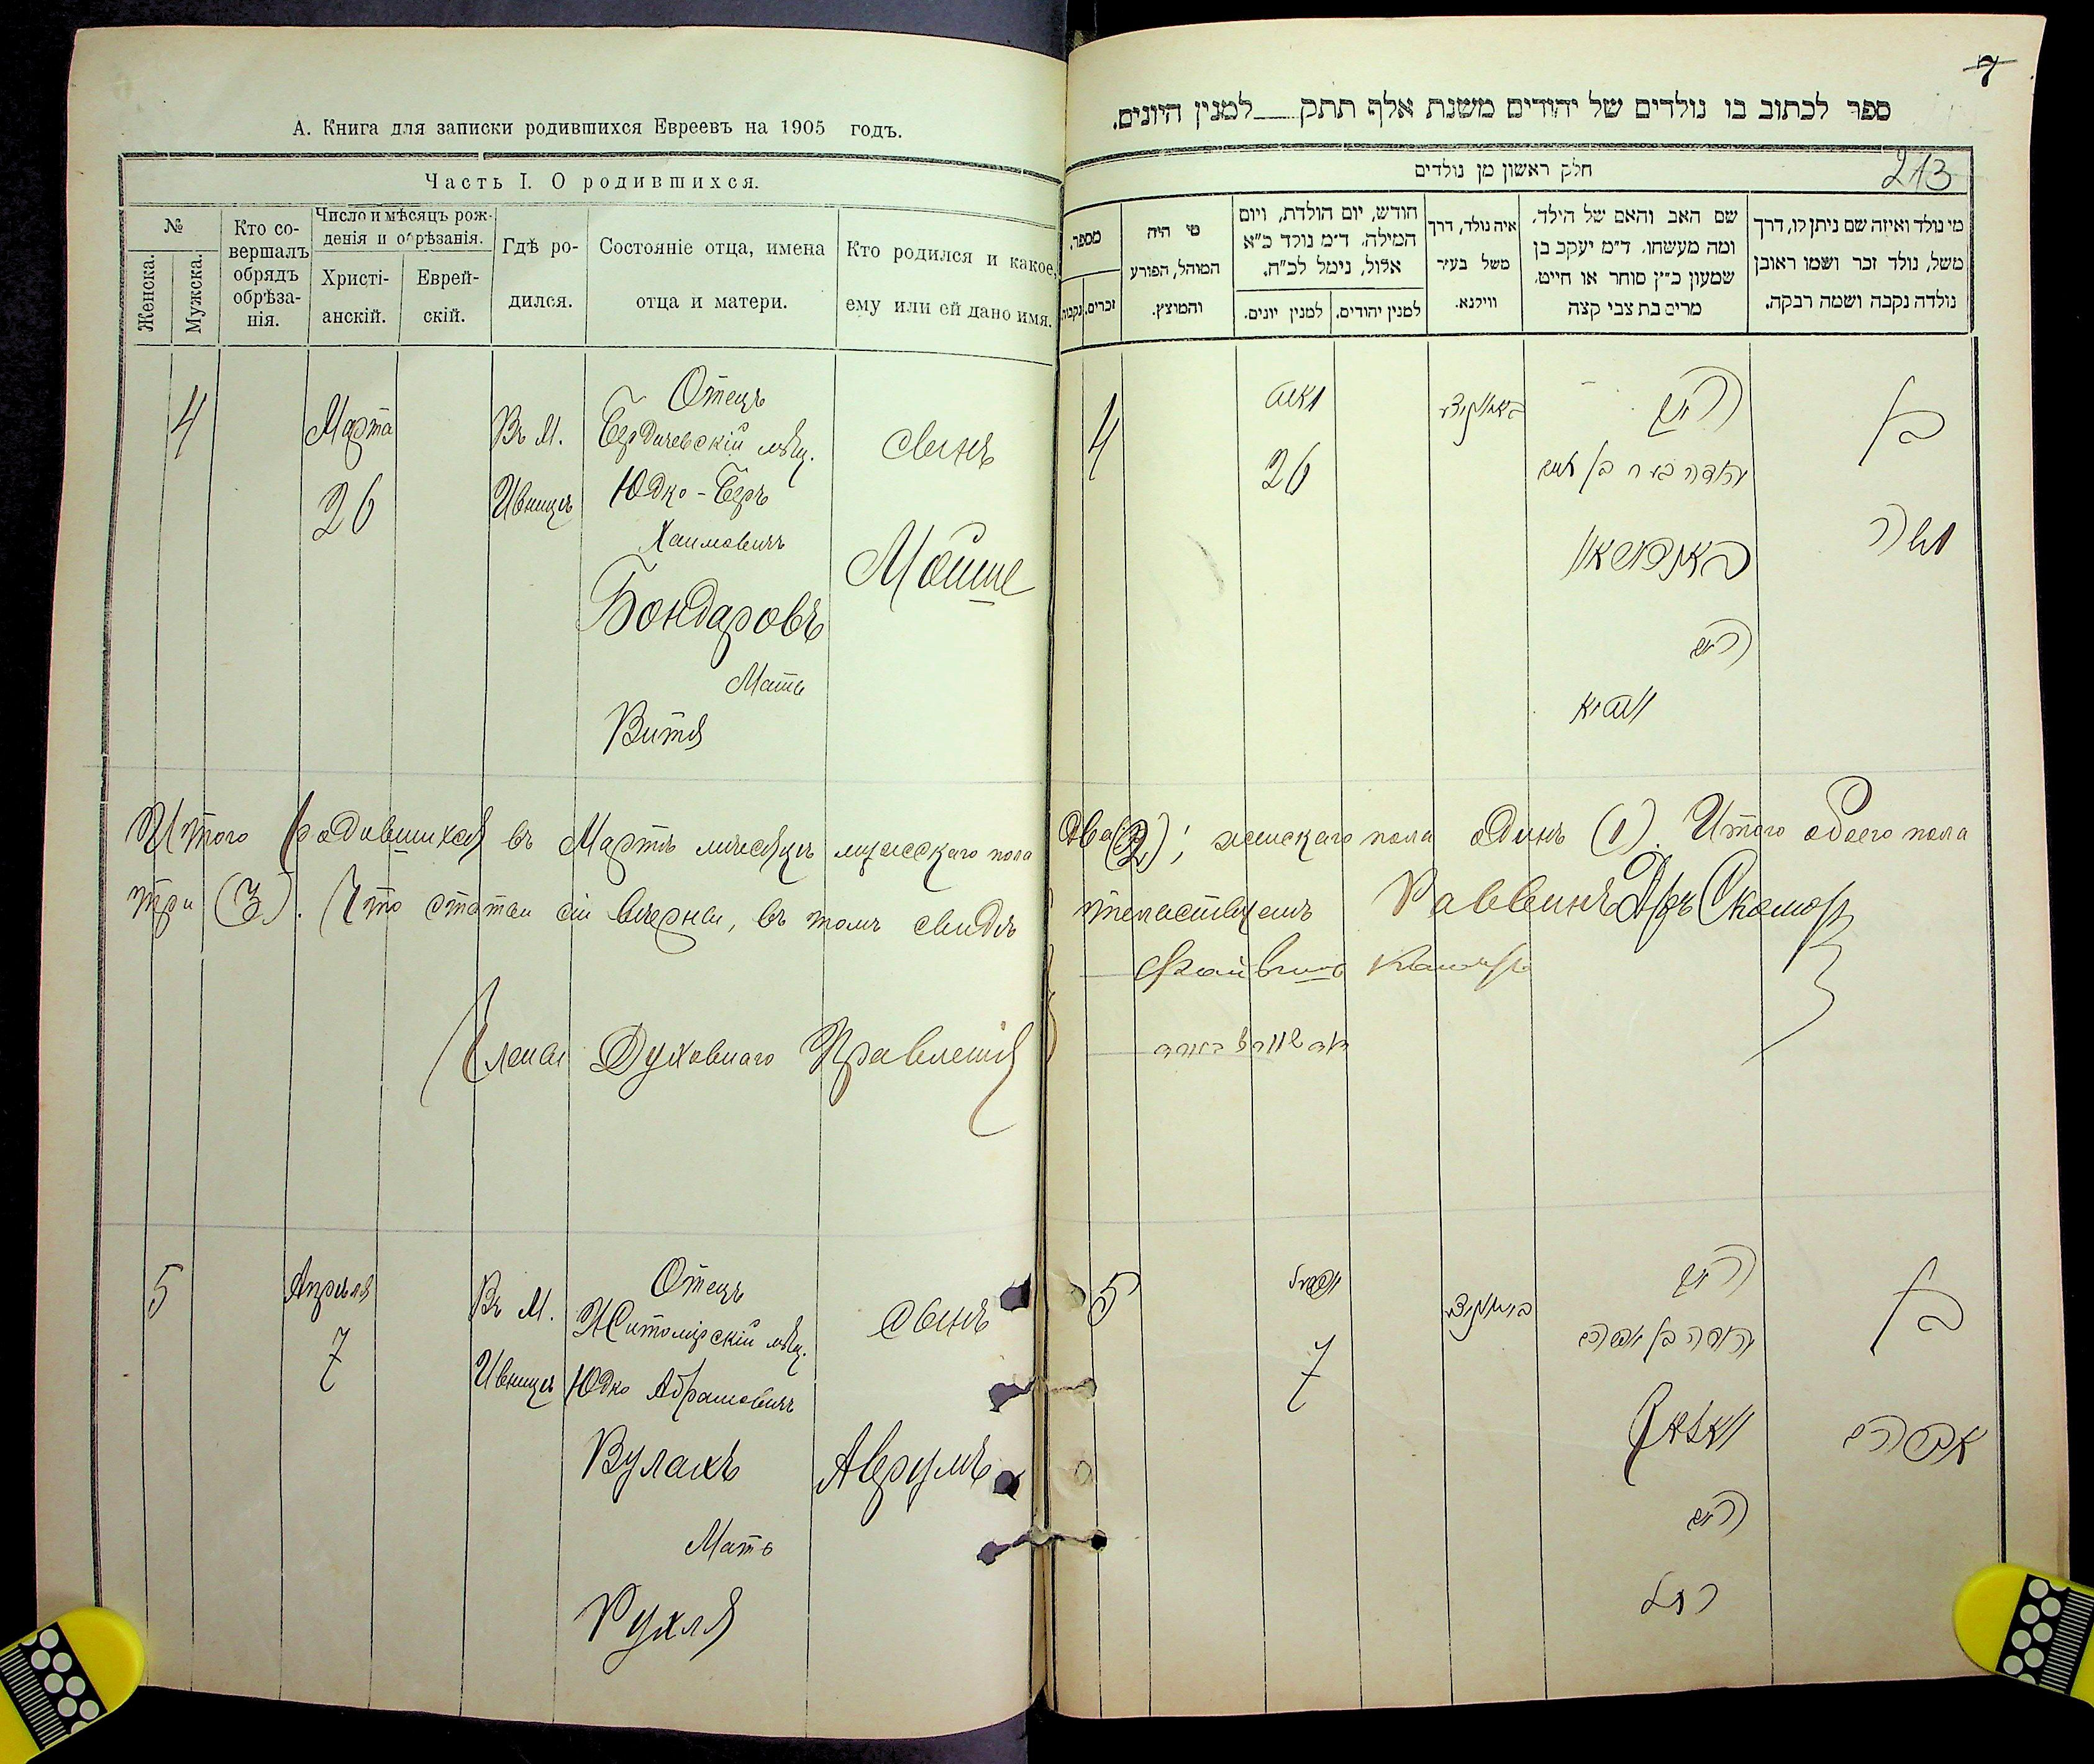 А. Книга для записки родившихся Евреевъ на 1905 годъ.
Часть I. О родившихся.
№
Женска.
Мужска.
Кто со-
вершалъ
обрядъ
обрѣза-
нія.
Число и мѣсяцъ рож-
денія и обрѣзанія.
Христі-
анскій.
Еврей-
скій.
Гдѣ ро-
дился.
Состояніе отца, имена
отца и матери.
Кто родился и какое,
ему или ей дано имя.
4
Марта
26
Въ М.
Ивницѣ
Отецъ
Бердичевскій мѣщ.
Юдко-Беръ
Хаимовичъ
Бондаровъ
Мать
Витя
сынъ
Мойше
Итого родившихся въ Мартѣ мѣсяцѣ мужескаго пола
три (3). Что статьи сіи вѣрны, въ томъ свидѣ
Члены Духовнаго Правленія
5
Апрѣля
7
Въ М.
Ивницѣ
Отецъ
Житомірскій мѣщ.
Юдко Абрамовичъ
Вулахъ
Мать
Рухля
сынъ
Аврумъ
7
ספר לכתוב בו נולדים של יהודים משנת אלף תתק למנין היונים.
213
חלק ראשון מן נולדים
מי נולד ואיזה שם ניתן לו, דרך
משל, נולד זכר ושמו ראובן
נולדה נקבה ושמה רבקה.
שם האב והאם של הילד,
ומה מעשהו. ד״מ יעקב בן
שמעון כ״ץ סוחר או חייט,
מרים בת צבי קצה
איה נולד, דרך
משל בעיר
ווילנא.
חודש, יום הולדת, ויום
המילה, ד״מ נולד כ״א
אלול, נימל לכ״ח.
למנין יהודים.
למנין יונים.
מי היה
המוהל, הפורע
והמוצץ.
מספר,
זכרים,
נקבות
4
26
בן
משה
האב
האם
два (2); женскаго пола одинъ (1). Итого обоего пола
тельствуемъ Раввинъ
5
7
בן
אברהם
האב
יהודה בן אברהם
האם
רחל